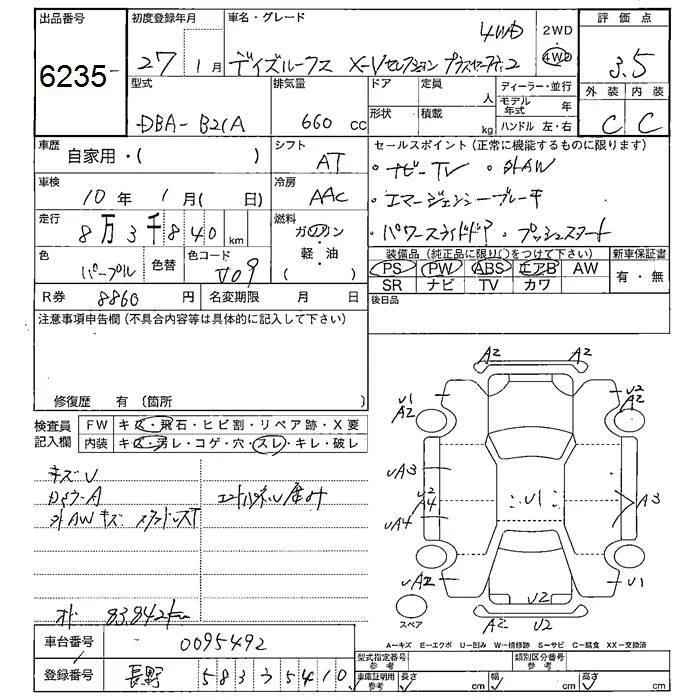 出品番号 初度登録年月 車名・グレード 評価点
6235 27年1月 デイズルークス X-Vセレクション プラスセーフティ2 4WD 2WD 4WD 3.5
型式 排気量 ドア 定員 人 ディーラー・並行 外装 内装
DBA-B21A 660 cc 形状 積載 kg モデル年式 年 ハンドル 左・右 C C
車歴 自家用・( ) シフト AT セールスポイント(正常に機能するものに限ります)
・ナビーTV ・外AW
車検 10年 1月( 日) 冷房 AAC ・エマージェンシーブレーキ
走行 8万3千840km 燃料 ガソリン・軽・油( ) ・パワースライドドア ・プッシュスタート
色 パープル 色替 色コード V09 装備品(純正品に限り〇をつけて下さい) 新車保証書
PS PW ABS エアB AW 有・無
SR ナビ TV カワ
R券 8860円 名変期限 月 日 後日品
注意事項申告欄(不具合内容等は具体的に記入して下さい)
修復歴 有 (箇所
検査員記入欄 FW キズ・飛石・ヒビ割・リペア跡・X要
内装 キズ・汚レ・コゲ・穴・スレ・キレ・破レ
キズU
外AWキズ
オド 83,842km
A2 A2
U1 A2 U2 A2
UA3 U2 A4 UA4 U1 A3
UA2 U2 U1
スペア A2 U2
A-キズ E-エクボ U-凹み W-補修跡 S-サビ C-腐食 XX-交換済
車台番号 0095492
型式指定番号 参考 類別区分番号 参考
登録番号 長野 583 5410
車庫証明用 参考 長さ cm 幅 cm 高さ cm